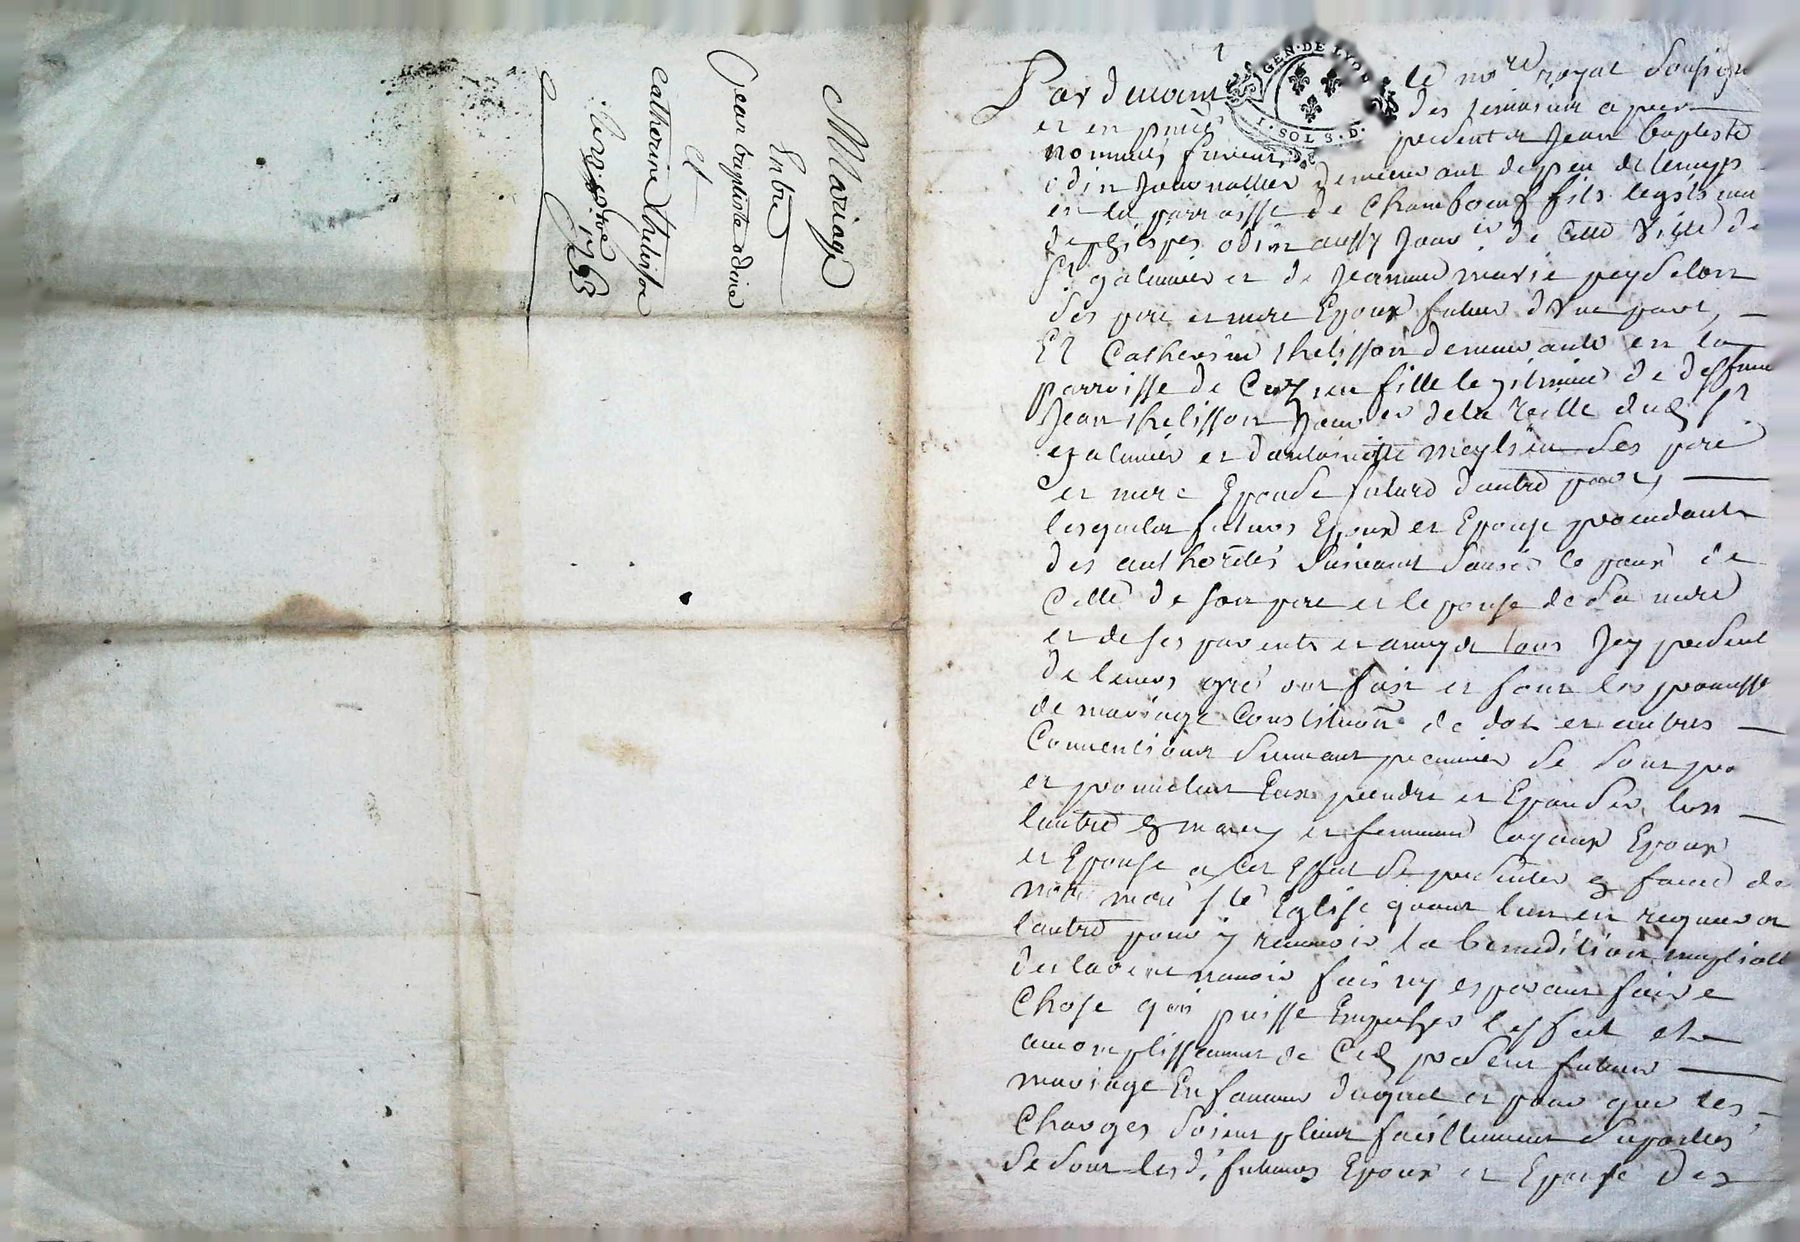 Mariage
Entre
Jean baptiste odin
et
Catherine thelisson
1763
GEN. DE LYON
I. SOL S. D.
Par devant le no.re royal soussigné
et en des temoins apres
nommés furent presents Jean baptiste
odin Journallier demeurant depuis peu de temps
en la parroisse de Chambœuf fils legitime
de odin aussy Jour.er de cette Ville de
S.t galmier et de Jeanne marie peyselon
ses pere et mere Epoux futur d'Une part,
Et Catherine thelisson demeurante en la
parroisse de Cuzieu fille legitime de deffunt
Jean thelisson de la Ville dud. S.t
galmier et d'antoinette ses pere
et mere Epouse future d'autre part,
lesquels futurs Epoux et Epouse procedants
des authorités suivant savoir le
Celle de son pere et lepouse de sa mere
et de ses parents et amys tous Icy presents
de leurs gré ont fait et font les promesses
de mariage Constitu.on de dot et autres
Conventions suivant premier se sont
et promettent Eux prendre et Epouser lun
lautre en mary et femme loyaux Epoux
et Epouse a Cet Effet se presenter en face de
notre mere s.te Eglise quant lun en requerra
lautre pour y recevoir la benediction nuptialle
declarent navoir fait ny esperant faire
Chose qui puisse Empecher leffect et
accomplissement de Ced. present futur
mariage En faveur duquel et pour que les
Charges soient plus facillement suportées
se sont lesd. futurs Epoux et Epouse des